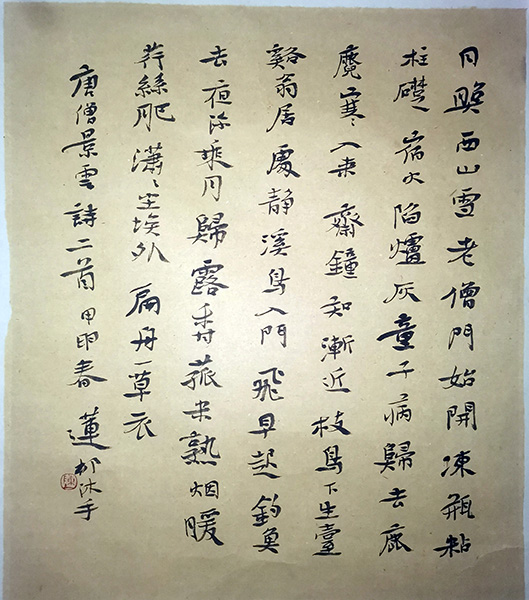 日照西山雪老僧門始開凍瓶粘
柱礎宿火陷爐灰童子病歸去鹿
麑寒入来齋鐘知漸近枝鳥下生臺
谿翁居處静溪鳥入門飛早起釣魚
去夜深乘月歸露香菰米熟烟暖
荇絲肥瀟〻尘埃外扁舟一草衣
唐僧景雲詩二首 甲申春 蓮邨沐手